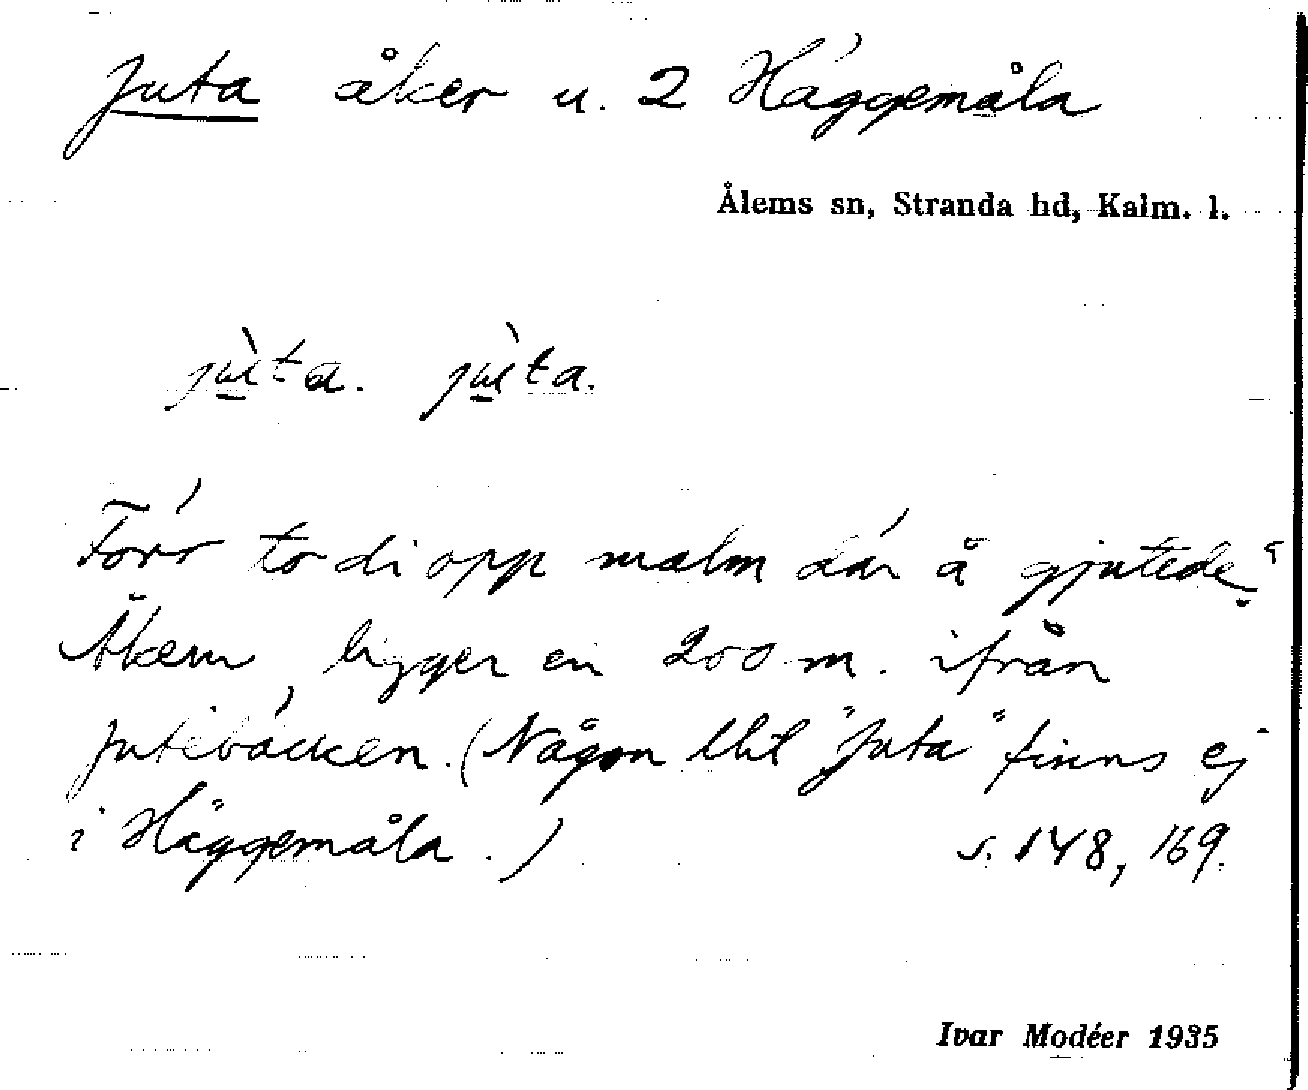 Juta åker u. 2 Häggemåla
Ålems sn, Stranda hd, Kalm. l.
jùta. jùta.
Förr to di opp malm där å gjutede.
Åkern ligger en 200 m. ifrån
Jutebäcken. (Någon "Juta" finns ej
i Häggemåla.) s. 148, 169.
Ivar Modéer 1935